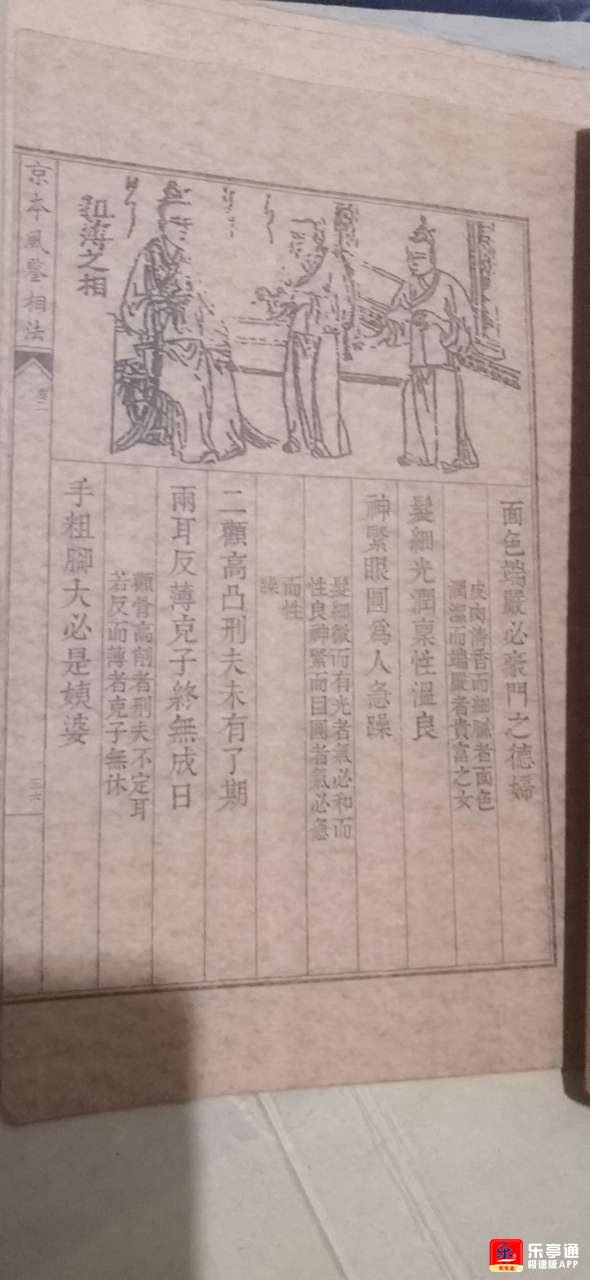 面色端嚴必豪門之德婦
皮肉清香而細膩者面色
潤潔而端嚴者貴富之女
髮細光潤稟性溫良
神緊眼圓爲人急躁
髮細微而有光者氣必和而
性良神緊而目圓者氣必急
而性
躁
二顴高凸刑夫未有了期
兩耳反薄克子終無成日
顴骨高削者刑夫不定耳
若反而薄者克子無休
手粗腳大必是姨婆
之相
京本風鑒相法
卷二
三六
乐亭通
极速版APP